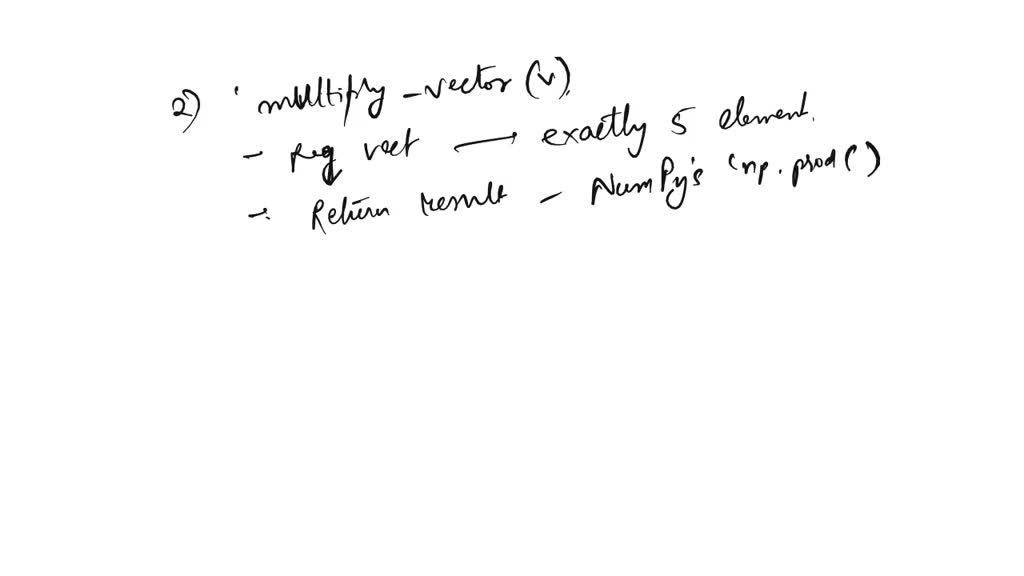 2) ' multiply - vector (v),
- req vect → exactly 5 element.
→ Return result - NumPy's 'np.prod()